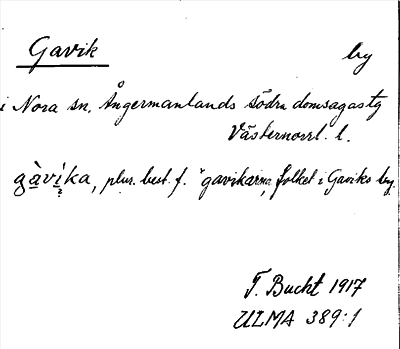 Gavik by
i Nora sn. Ångermanlands södra domsagas tg
Västernorrl. l.
gàvika, plur. best. f. "gavikarna, folket i Gaviks by.
T. Bucht 1917
ULMA 389:1